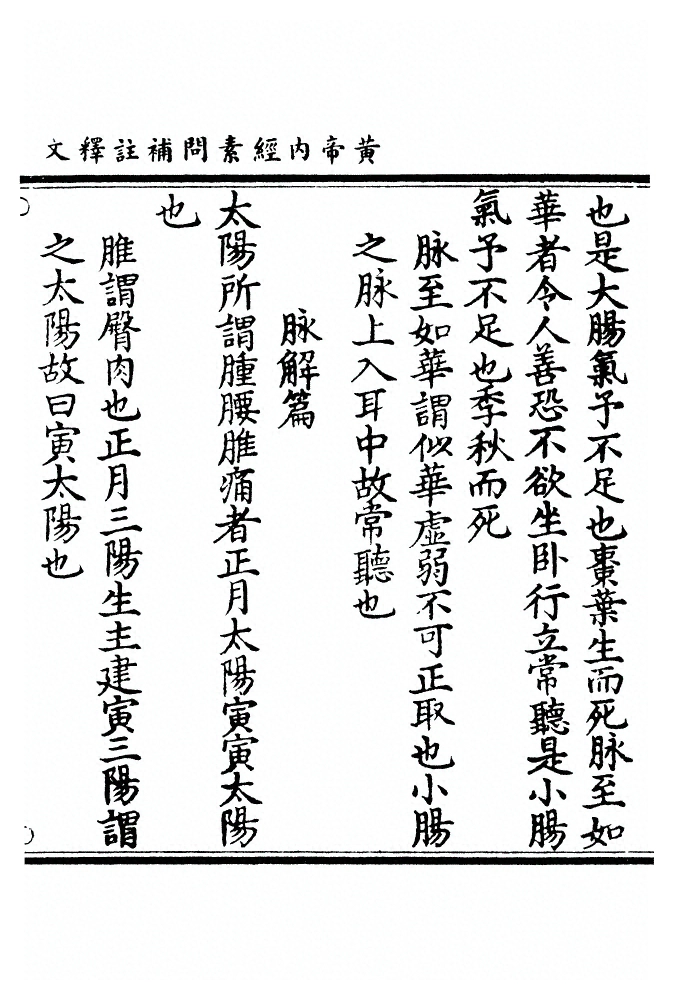 黃帝內經素問補註釋文
也是大腸氣予不足也棗葉生而死脉至如
華者令人善恐不欲坐卧行立常聽是小腸
氣予不足也季秋而死
脉至如華謂似華虛弱不可正取也小腸
之脉上入耳中故常聽也
脉解篇
太陽所謂腫腰脽痛者正月太陽寅寅太陽
也
脽謂臀肉也正月三陽生主建寅三陽謂
之太陽故曰寅太陽也